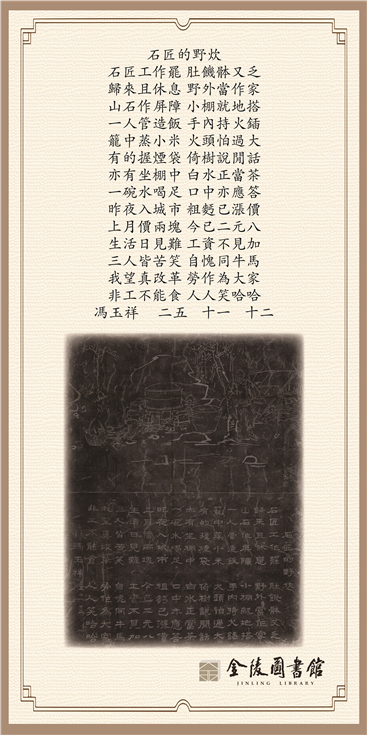 石匠的野炊
石匠工作罷 肚饑骵又乏
歸來且休息 野外當作家
山石作屏障 小棚就地搭
一人管造飯 手內持火鍤
籠中蒸小米 火頭怕過大
有的握煙袋 倚樹說閒話
亦有坐棚中 白水正當茶
一碗水喝足 口中亦應答
昨夜入城市 粗麪已漲價
上月價兩塊 今已二元八
生活日見難 工資不見加
三人皆苦笑 自愧同牛馬
我望真改革 勞作為大家
非工不能食 人人笑哈哈
馮玉祥 二五 十一 十二
金陵圖書館
JINLING LIBRARY